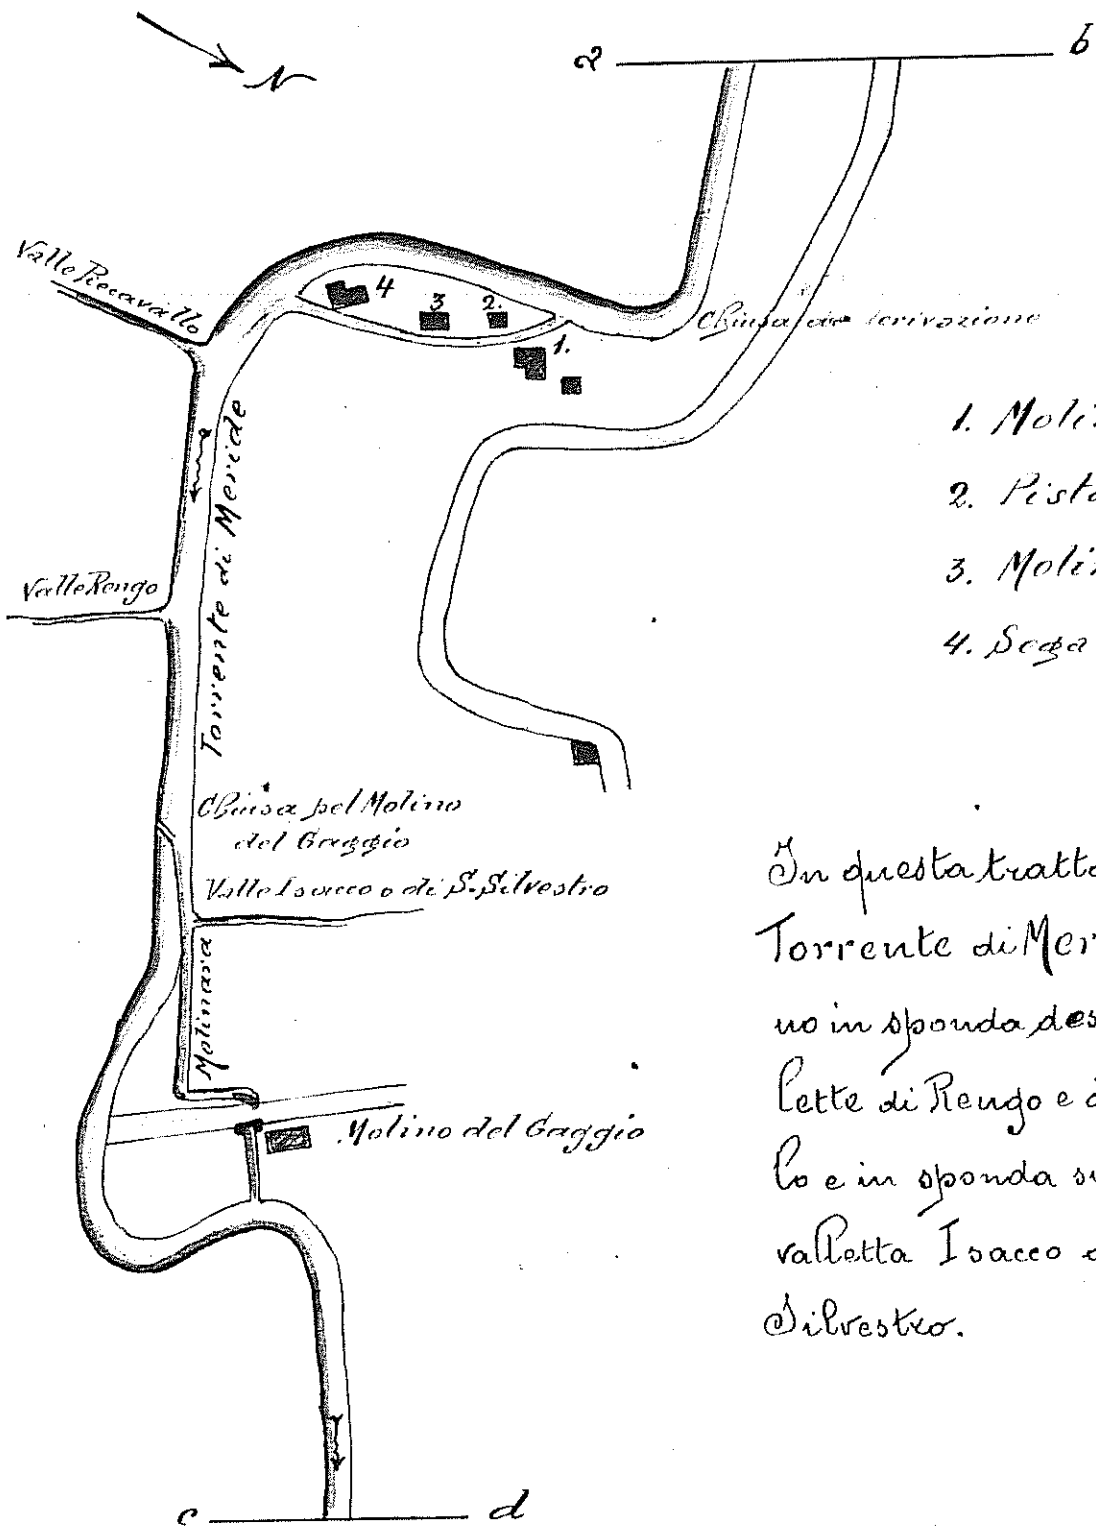 N
a b
Valle Piecavallo
4 3 2. 1.
Chiusa di derivazione
1. Moli
2. Pist
3. Moli
4. Sega
Torrente di Meride
Valle Rengo
Chiusa pel Molino
del Gaggio
Valle Isacco o di S. Silvestro
Molinara
Molino del Gaggio
In questa tratta
Torrente di Mer
no in sponda des
lette di Rengo e
lo e in sponda si
valletta Isacco
Silvestro.
c d